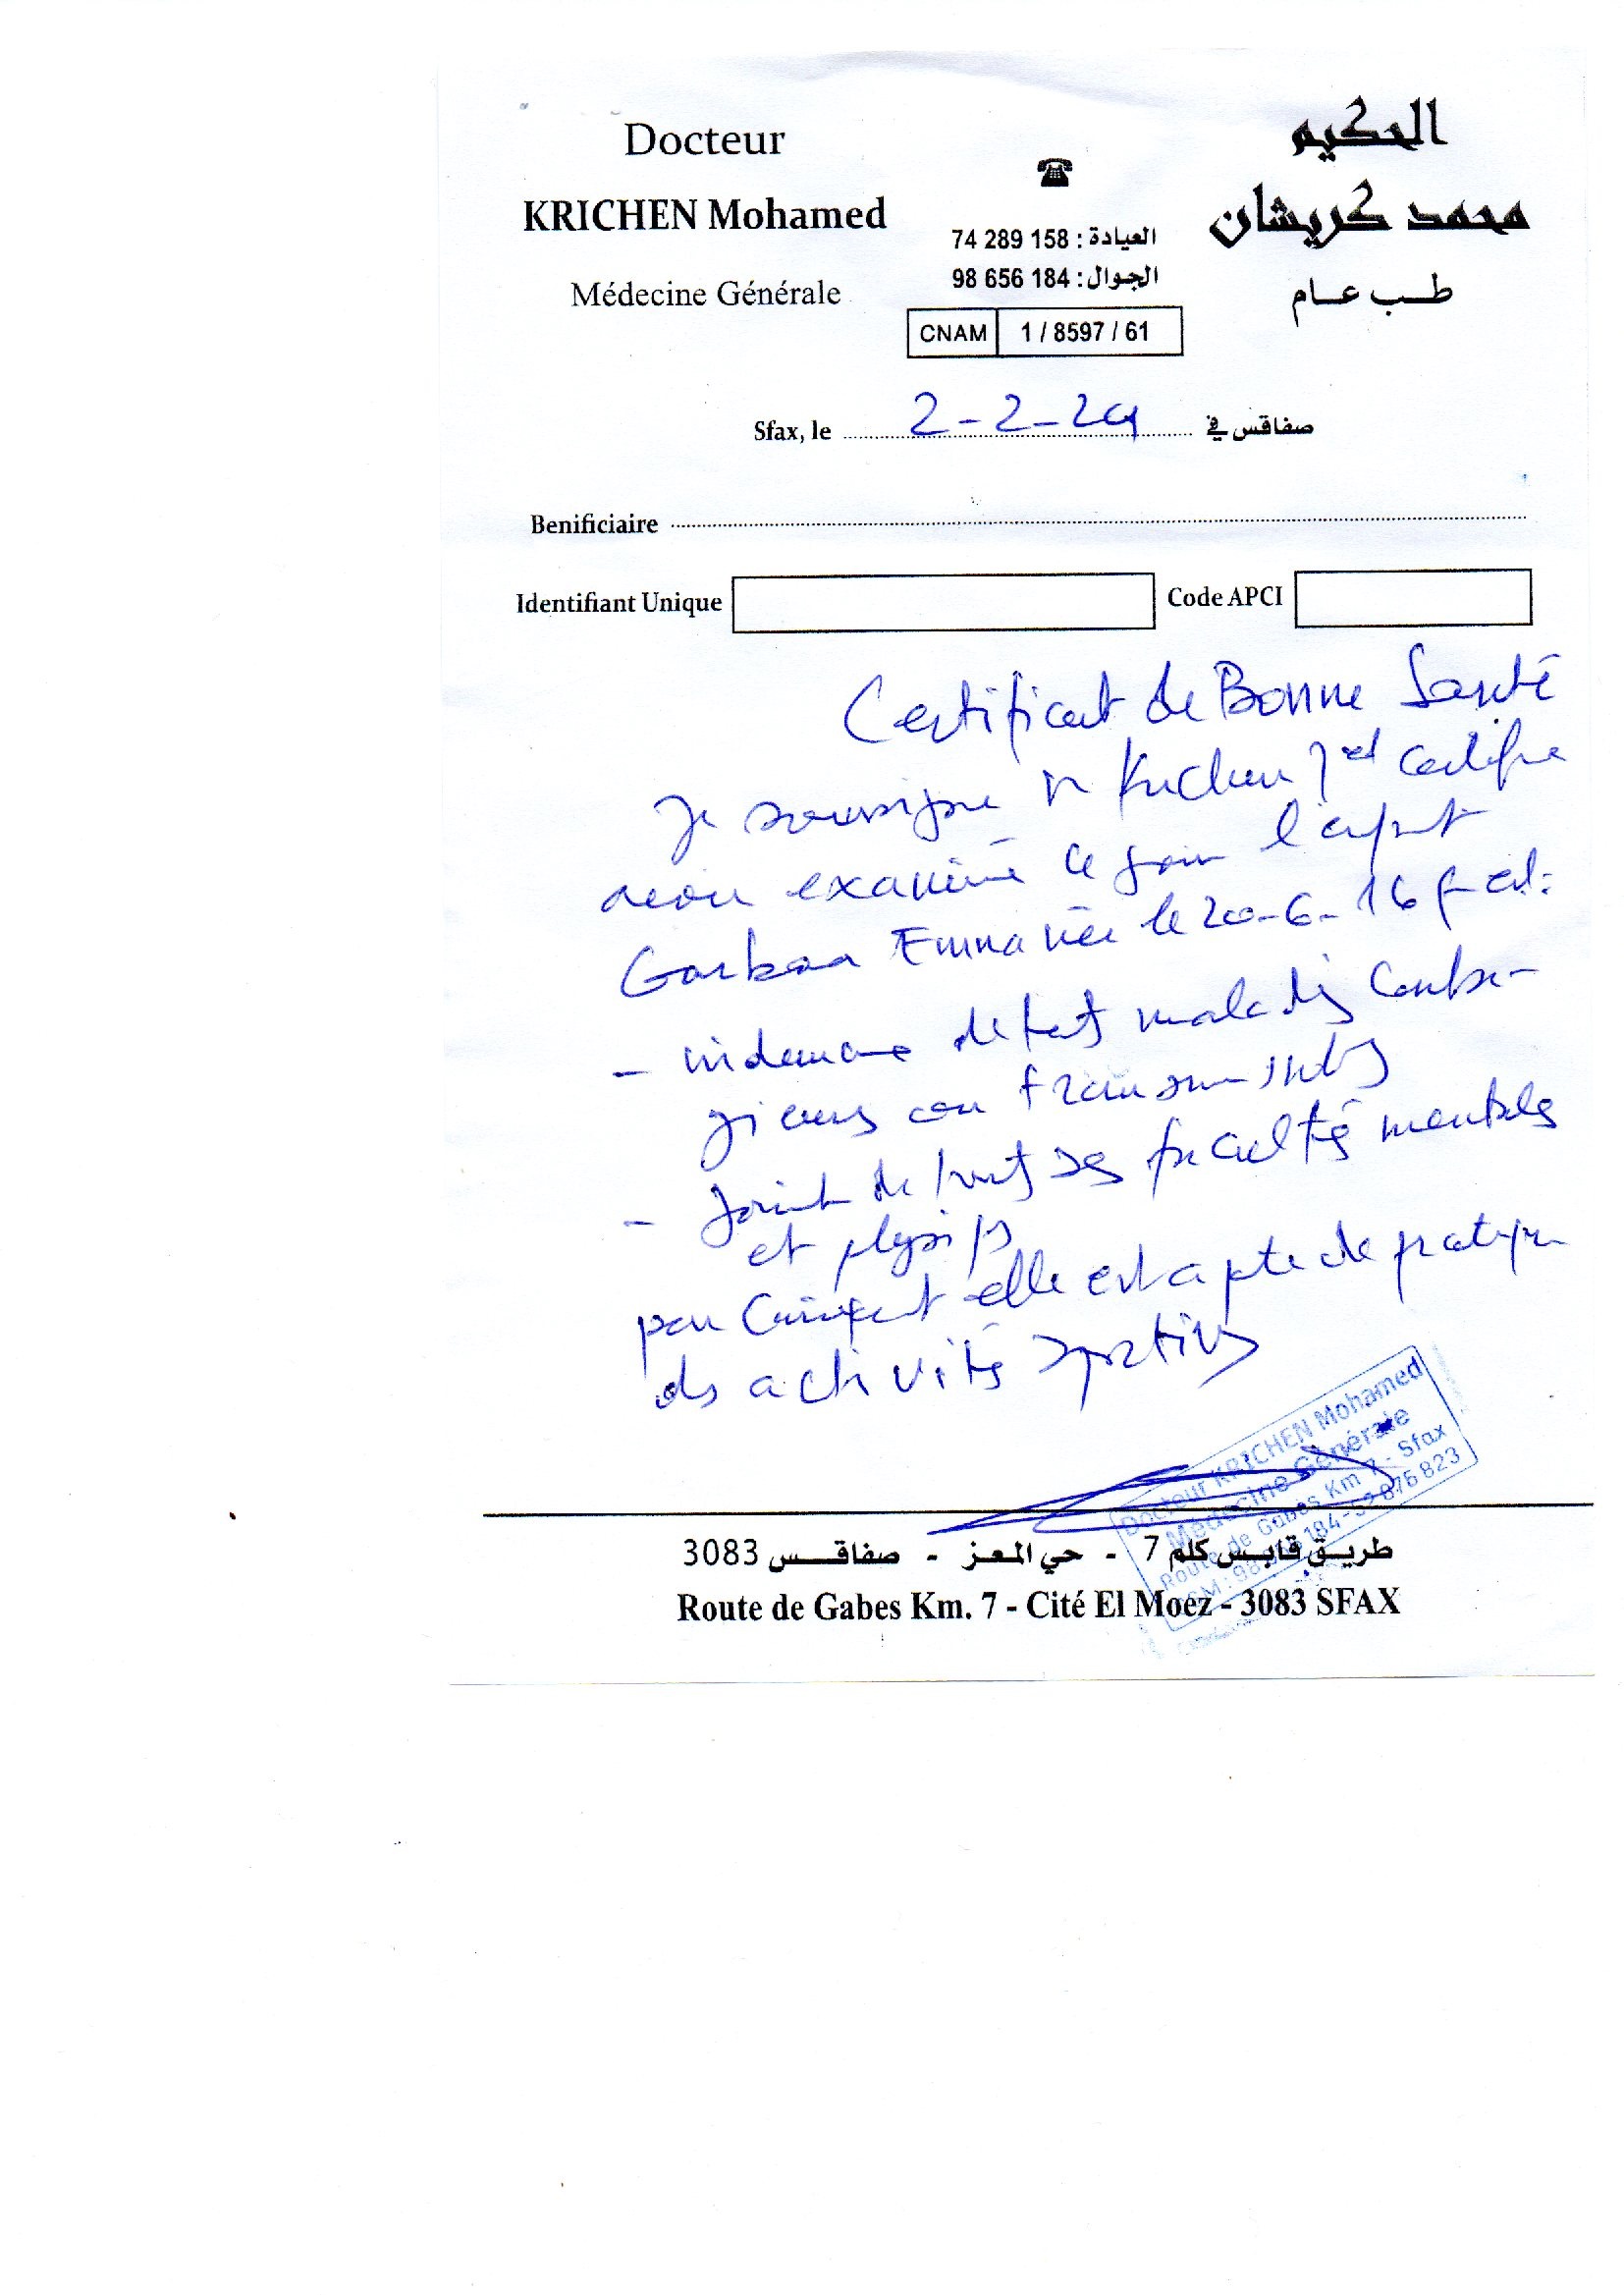 Docteur
KRICHEN Mohamed
Médecine Générale
العيادة : 74 289 158
الجوال : 98 656 184
CNAM 1 / 8597 / 61
الحكيم
محمد كريشان
طب عام
Sfax, le 2-2-24 صفاقس في
Benificiaire
Identifiant Unique
Code APCI
Certificat de Bonne Santé
Je soussigne Dr Krichen Med certifie
avoir examiné ce jour l'enfant
Emna née le 20-6-16
- indemne de tts maladies conta-
gieuses ou transmissibles
- Jouit de tout ses facultés mentales
et physiqs
par conséqent elle est apte de pratiqur
ds activités sportives
Docteur KRICHEN Mohamed
Médecine Générale
Route de Gabes Km 7 - Sfax
طريق قابس كلم 7 - حي المعز - صفاقس 3083
Route de Gabes Km. 7 - Cité El Moez - 3083 SFAX